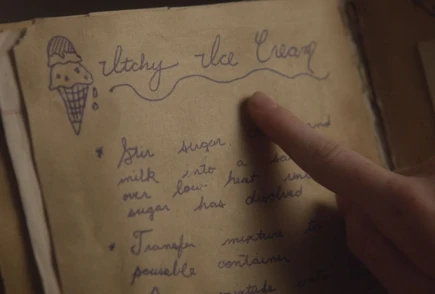 Itchy Ice Cream
• Stir sugar and
milk into a
over low heat
sugar has dissolved
• Transfer mixture
pourable container
mixture